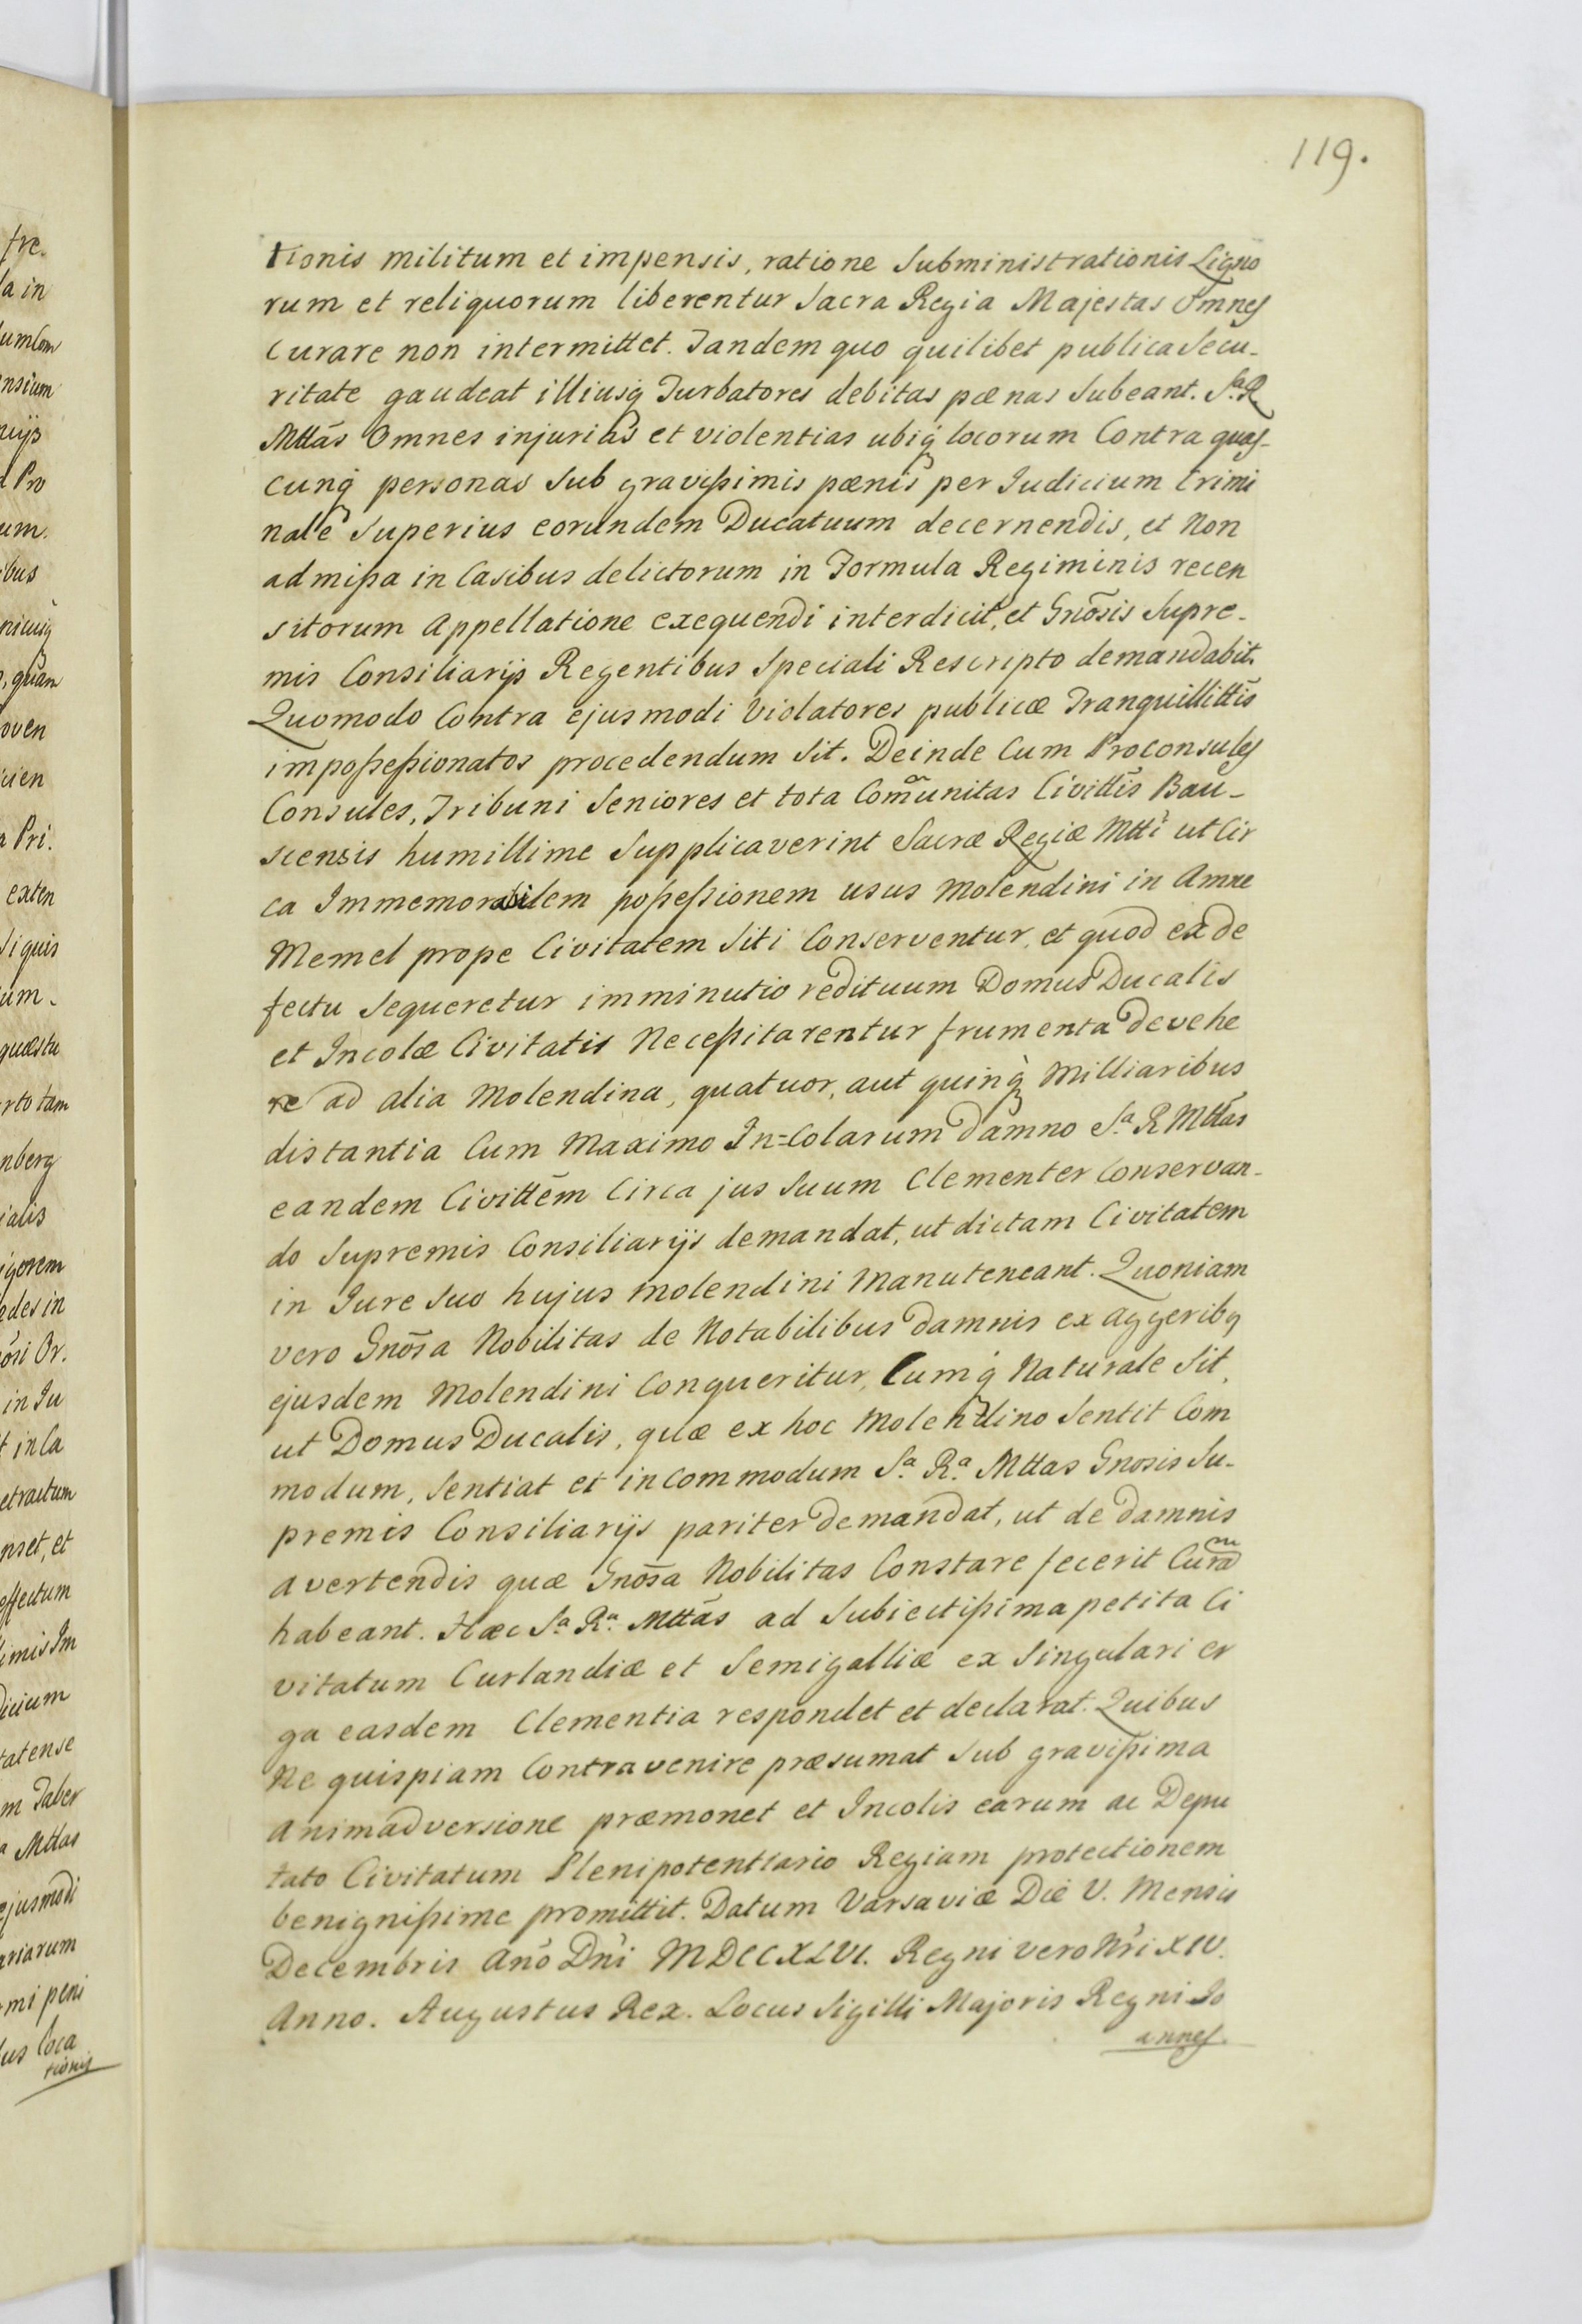 119.
tionis militum et impensis, ratione Subministrationis Ligno
rum et reliquorum liberentur Sacra Regia Majestas Omnes
Curare non intermittet. Tandem quo quilibet publica Secu-
ritate gaudeat illiusq Turbatores debitas pœnas Subeant. Sa R
Mttas Omnes injurias et violentias ubiq locorum Contra quas-
cunq personas Sub gravißimis pœnis per Judicium Crimi
nale Superius eorundem Ducatuum decernendis, et Non
admißa in Casibus delictorum in Formula Regiminis recen
sitorum Appellatione exequendi interdicit, et Gnosis Supre-
mis Consiliarijs Regentibus Speciali Rescripto demandabit.
Quomodo Contra ejusmodi Violatores publicæ Tranquillittis
impoßeßionatos procedendum Sit. Deinde Cum Proconsules
Consules, Tribuni Seniores et tota Comunitas Civittis Bau-
scensis humillime Supplicaverint Sacræ Regiæ Mtti ut Cir
ca Immemorabilem poßeßionem usus Molendini in Amne
Memel prope Civitatem Siti Conserventur, et quod ex de
fectu Sequeretur imminutio redituum Domus Ducalis
et Incolæ Civitatis Neceßitarentur frumenta devehe
re ad alia Molendina, quatuor, aut quinq Milliaribus
distantia Cum Maximo In=Colarum damno Sa R Mttas
eandem Civittem Circa jus Suum Clementer Conservan-
do Supremis Consiliarijs demandat, ut dictam Civitatem
in Jure Suo hujus Molendini Manuteneant. Quoniam
vero Gnosa Nobilitas de Notabilibus damnis ex aggeribq
ejusdem Molendini Conqueritur, Cumq Naturale Sit,
ut Domus Ducalis, quæ ex hoc Molendino Sentit Com
modum, Sentiat et incommodum Sa Ra Mttas Gnosis Su-
premis Consiliarijs pariter demandat, ut de damnis
avertendis quæ Gnosa Nobilitas Constare fecerit Curam
habeant. Hæc Sa Ra Mttas ad Subiectißima petita Ci
vitatum Curlandiæ et Semigalliæ ex Singulari er
ga easdem Clementia respondet et declarat. Quibus
Ne quispiam Contravenire præsumat Sub gravißima
animadversione præmonet et Incolis earum ac Depu
tato Civitatum Plenipotentiario Regiam protectionem
benignißime promittit. Datum Varsaviæ Die V. Mensis
Decembris Ano Dni MDCCXLVI. Regni vero Nri XIV.
Anno. Augustus Rex. Locus Sigilli Majoris Regni Jo
annes.